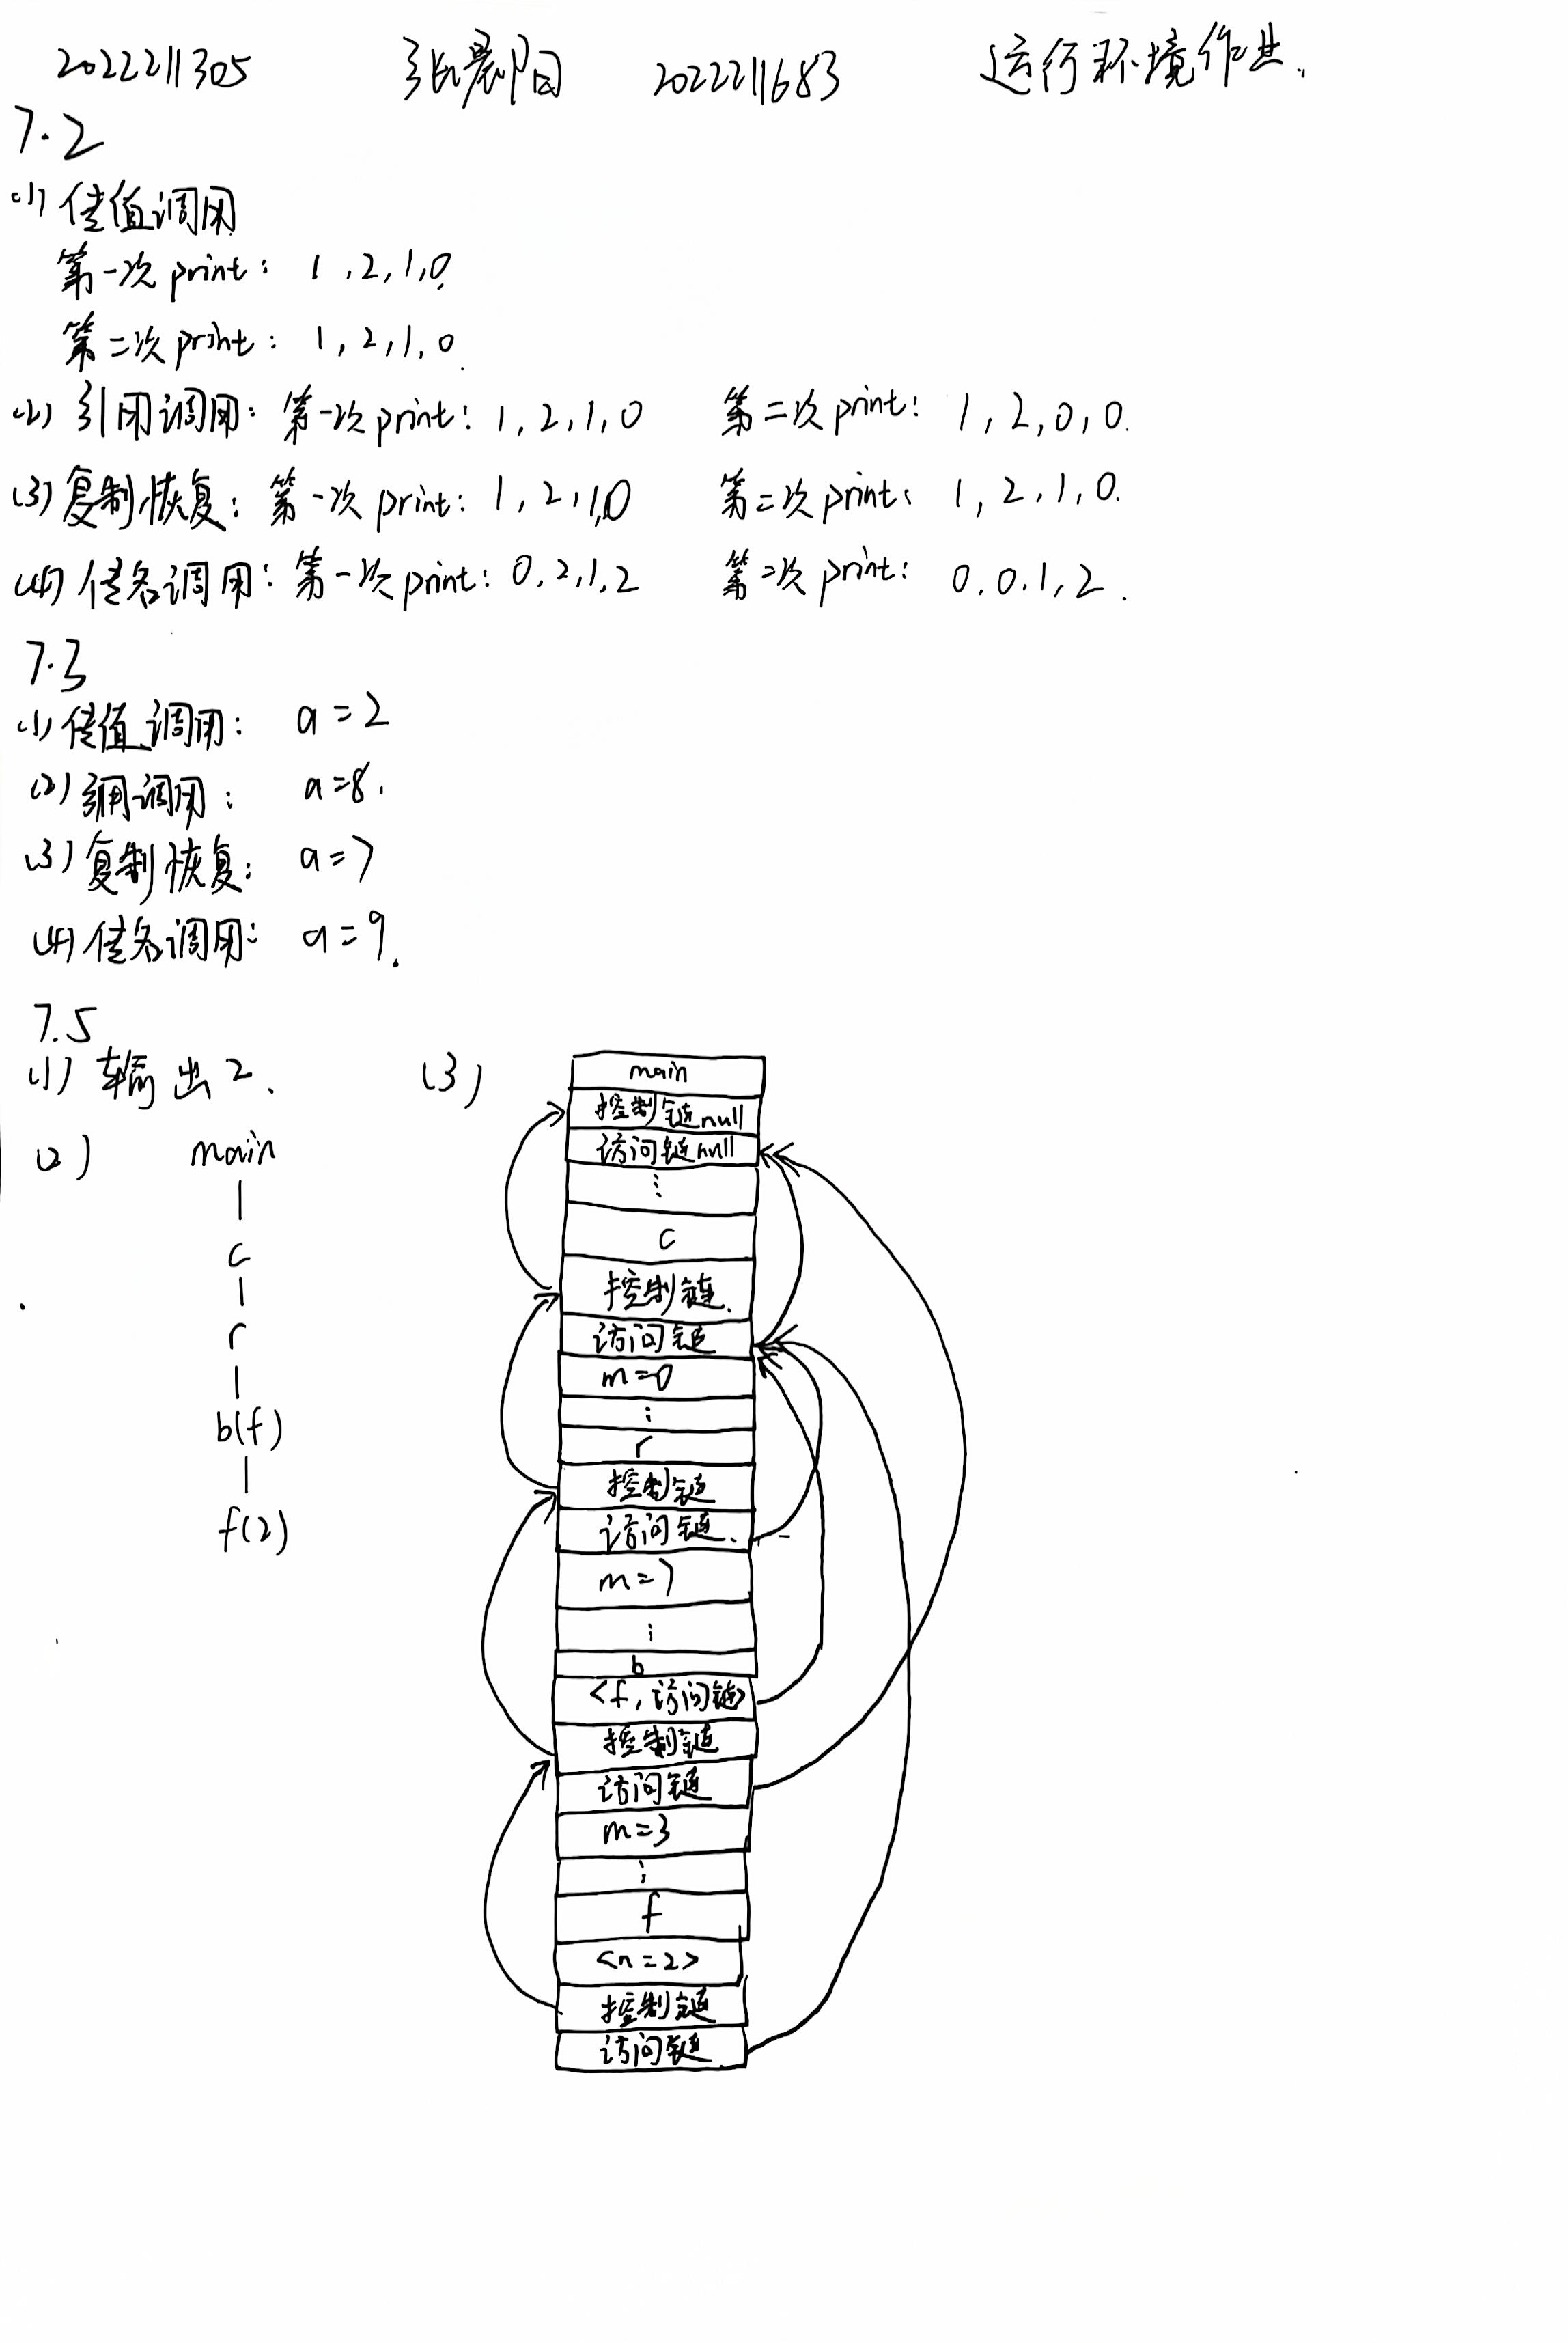 2022211305 张晨阳 2022211683 运行环境作业.
7.2
(1) 传值调用
第一次print: 1,2,1,0.
第二次print: 1,2,1,0.
(2) 引用调用: 第一次print: 1,2,1,0 第二次print: 1,2,0,0.
(3) 复制恢复: 第一次print: 1,2,1,0 第二次print: 1,2,1,0.
(4) 传名调用: 第一次print: 0,2,1,2 第二次print: 0.0.1,2.
7.3
(1) 传值调用: a=2
(2) 引用调用: a=8.
(3) 复制恢复: a=7
(4) 传名调用: a=9.
7.5
(1) 输出2.
(2)
main
c
r
b(f)
f(2)
(3)
main
控制链null
访问链null
⋮
c
控制链.
访问链
m=0
⋮
r
控制链
访问链.
m=7
⋮
b
<f,访问链>
控制链
访问链
m=3
⋮
f
<n=2>
控制链
访问链